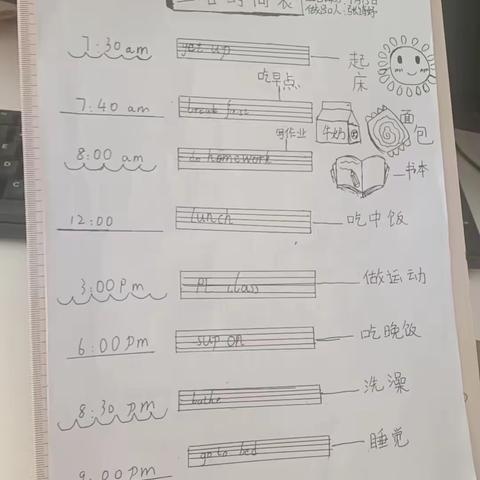 时间表
做的人:张
7:30 am get up 起床
吃早点
7:40 am break first 牛奶 面包
写作业
8:00 am do homework 书本
12:00 lunch 吃中饭
3:00 Pm PE class 做运动
6:00 Pm sup on 吃晚饭
8:30 pm bathe 洗澡
9:00 Pm go to bed 睡觉